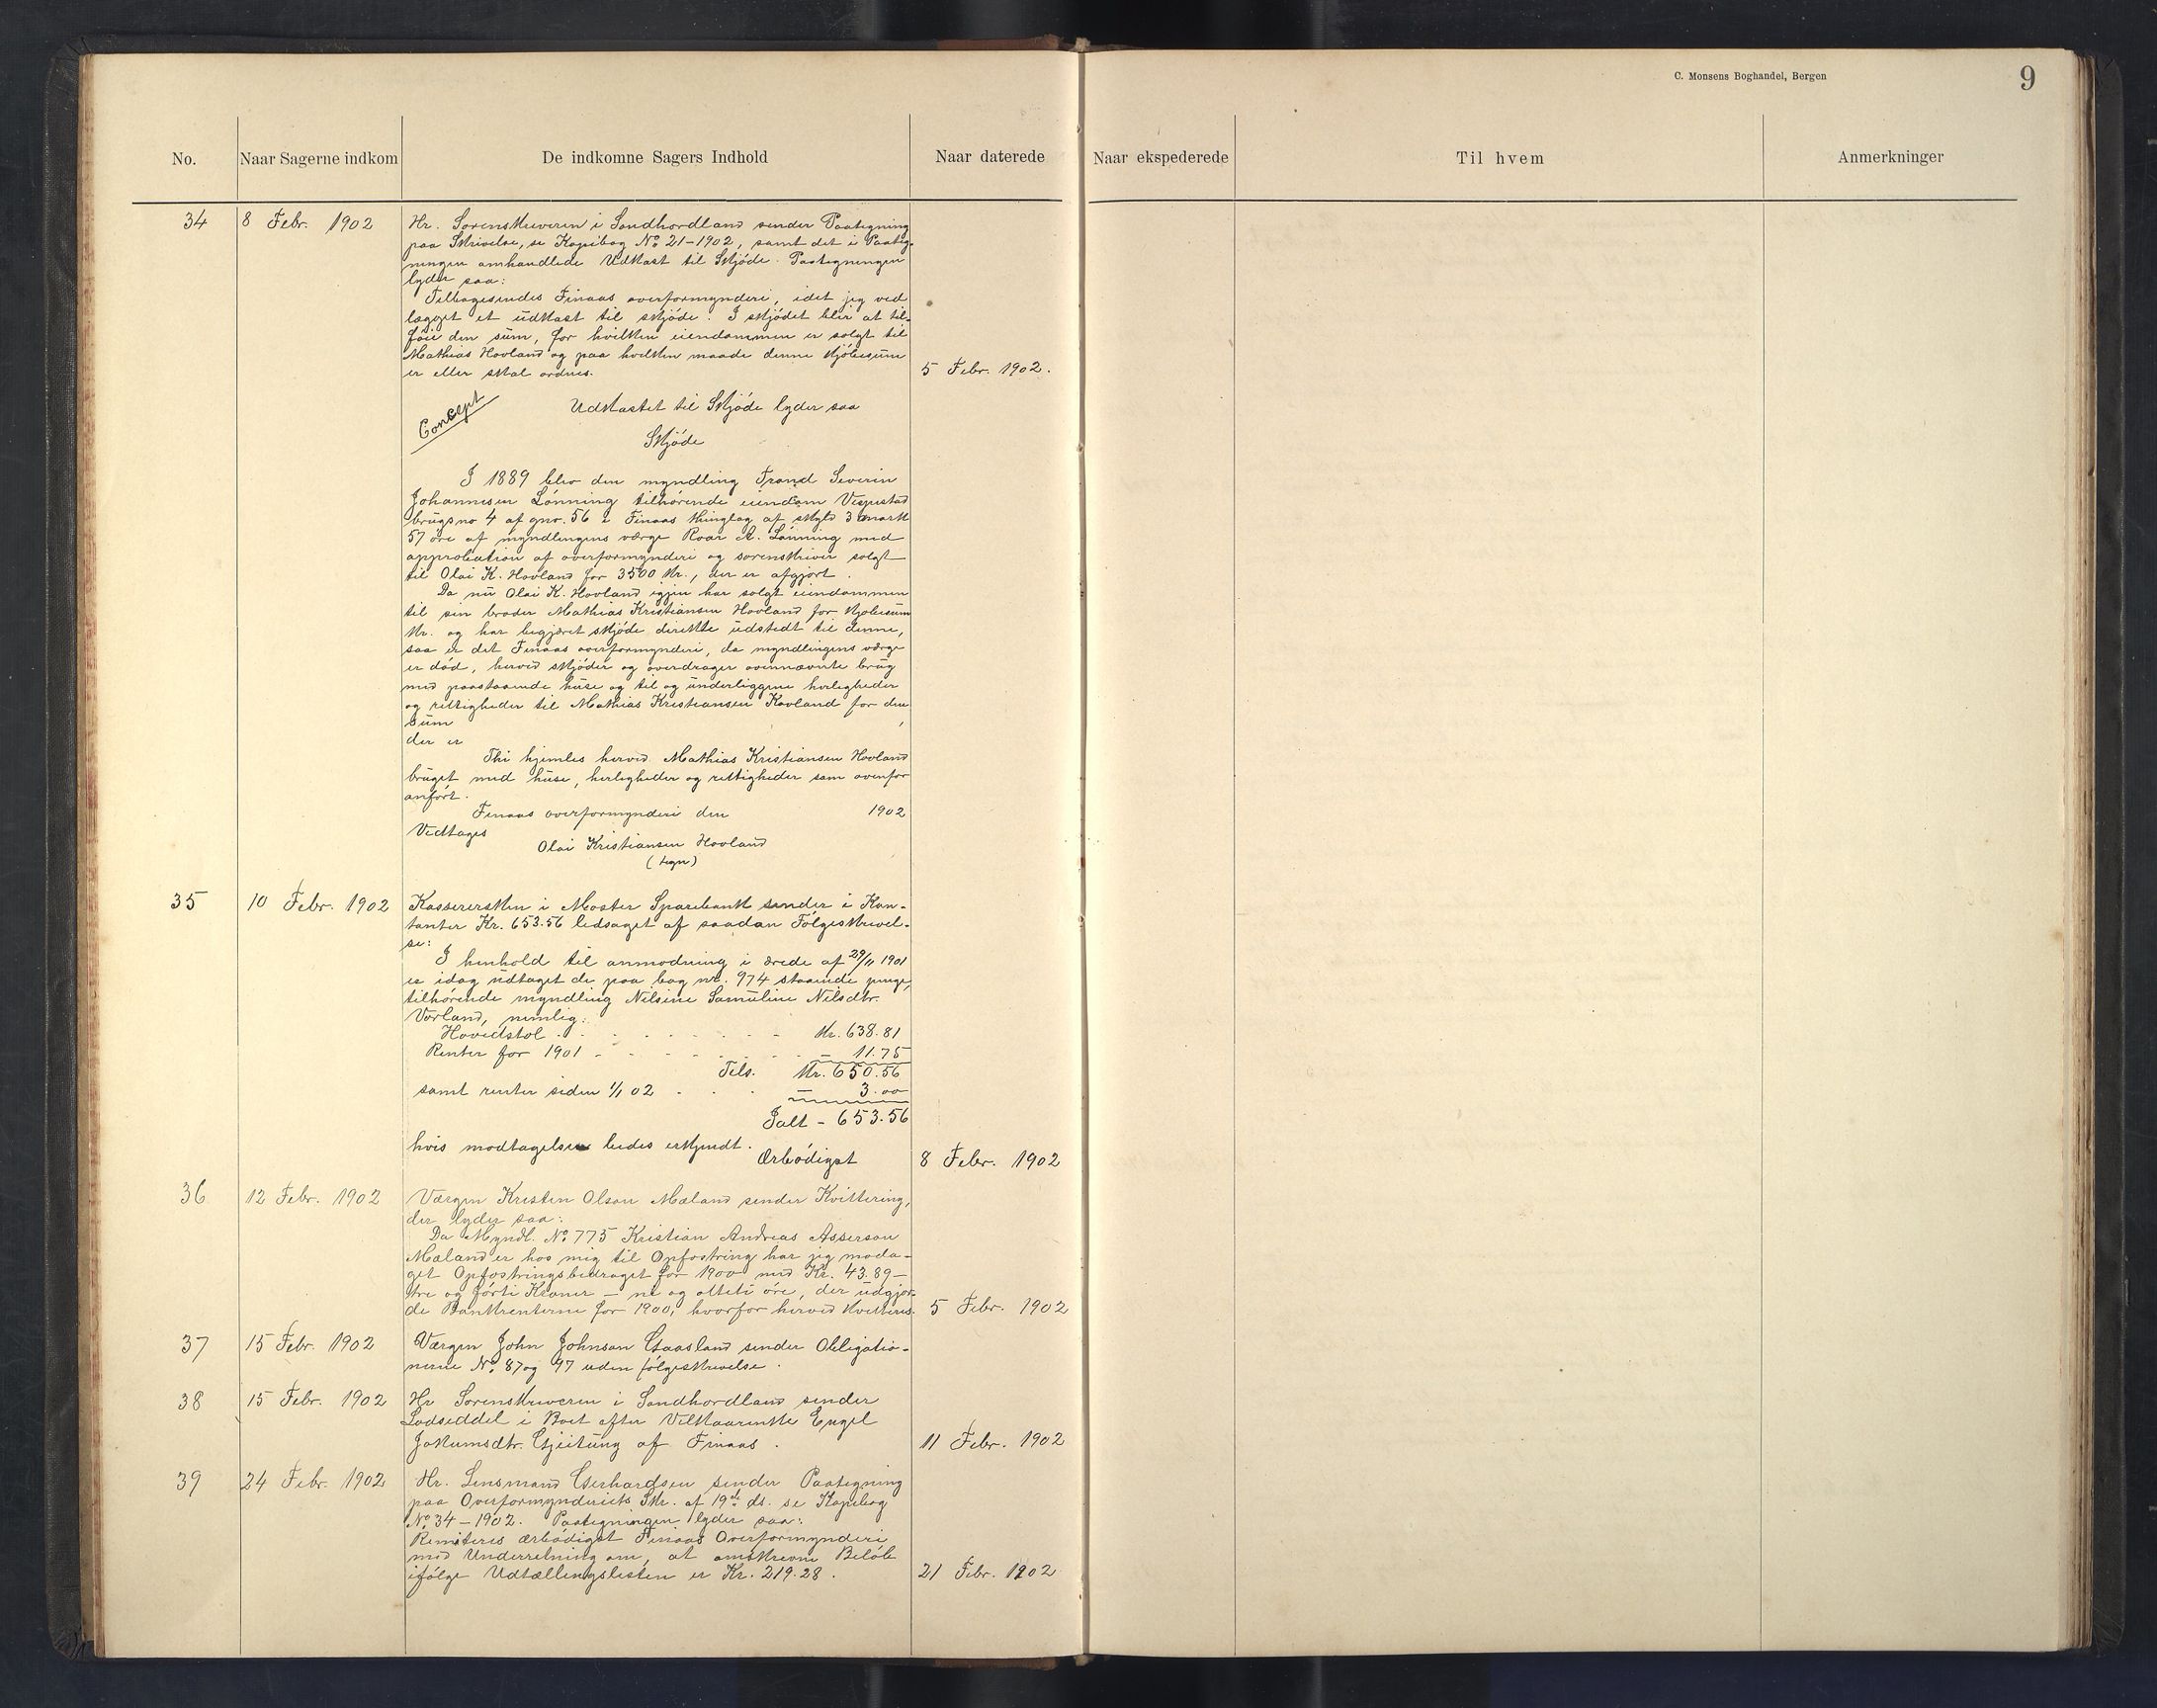 C. Monsens Boghandel, Bergen
9
No. Naar Sagerne indkom De indkomne Sagers Indhold Naar daterede Naar ekspederede Til hvem Anmerkninger
34 8 Febr. 1902 Hr. Sorenskriveren i Søndhordland sender Paategning
paa Skrivelse, se Kopibog No 21-1902, samt det i Paateg-
ningen omhandlede Udkast til Skjøde. Paategningen
lyder saa:
Tilbagesendes Finaas overformynderi, idet jeg ved
lægget et udkast til skjøde. I skjødet blir at til-
føie den sum, for hvilken eiendommen er solgt til
Mathias Hovland og paa hvilken maade denne kjøbesum
er eller skal ordnes. 5 Febr. 1902.
Concept
Udkastet til Skjøde lyder saa
Skjøde
I 1889 blev den myndling Trond Severin
Johannesen Lønning tilhørende eiendom Vespestad
brugsno 4 af gno. 56 i Finaas thinglag af skyld 3 mark
57 øre af myndlingens værge Roar A. Lønning med
approbation af overformynderi og sorenskriver solgt
til Olai K. Hovland for 3500 kr., der er afgjort.
Da nu Olai K. Hovland igjen har solgt eiendommen
til sin broder Mathias Kristiansen Hovland for kjøbesum
kr. og har begjæret skjøde direkte udstedt til denne,
saa er det Finaas overformynderi, da myndlingens værge
er død, herved skjøder og overdrager ovennævnte brug
med paastaaende huse og til og underliggene herligheder
og rettigheder til Mathias Kristiansen Hovland for den
sum ,
der er
Thi hjemles herved Mathias Kristiansen Hovland
bruget med huse, herligheder og rettigheder som ovenfor
anført.
Finaas overformynderi den 1902
Vedtages
Olai Kristiansen Hovland
(tegn)
35 10 Febr. 1902 Kasserersken i Moster Sparebank sender i Kon-
tanter Kr. 653.56 ledsaget af saadan Følgeskrivel-
se:
I henhold til anmodning i ærede af 29/11 1901
er idag udtaget de paa bog no. 974 staaende penge,
tilhørende myndling Nilsine Samuline Nilsdtr.
Vorland, nemlig:
Hovedstol . . . . . . . - kr. 638.81
Renter for 1901 - - - . . . . - 11.75
Tils. Kr. 650.56
samt renter siden 1/1 02 . . . - 3.00
Ialt - 653.56
hvis modtagelse bedes erkjendt.
Ærbødigst 8 Febr. 1902
36 12 Febr. 1902 Værgen Kristen Olson Mæland sender Kvittering,
der lyder saa:
Da Myndl. No 775 Kristian Andreas Asserson
Mæland er hos mig til Opfostring har jeg moda-
get Opfostringsbidraget for 1900 med Kr. 43.89 -
tre og førti Kroner - ni og otteti øre, der udgjør-
de Bankrenterne for 1900, hvorfor herved kvitteres. 5 Febr. 1902
37 15 Febr. 1902 Værgen John Johnson Gaasland sender Obligatio-
nerne No 87 og 97 uden følgeskrivelse.
38 15 Febr. 1902 Hr Sorenskriveren i Søndhordland sender
Lodseddel i Boet efter Vilkaarenke Engel
Jokumsdtr. Gjeitung af Finaas. 11 Febr. 1902
39 24 Febr. 1902 Hr. Lensmand Gerhardsen sender Paategning
paa Overformynderiets Skr. af 19d ds. se Kopibog
No 34-1902. Paategningen lyder saa:
Remiteres ærbødigst Finaas Overformynderi
med Underretning om, at omskrevne Beløb
ifølge Udtællingslisten er Kr. 219.28. 21 Febr. 1902